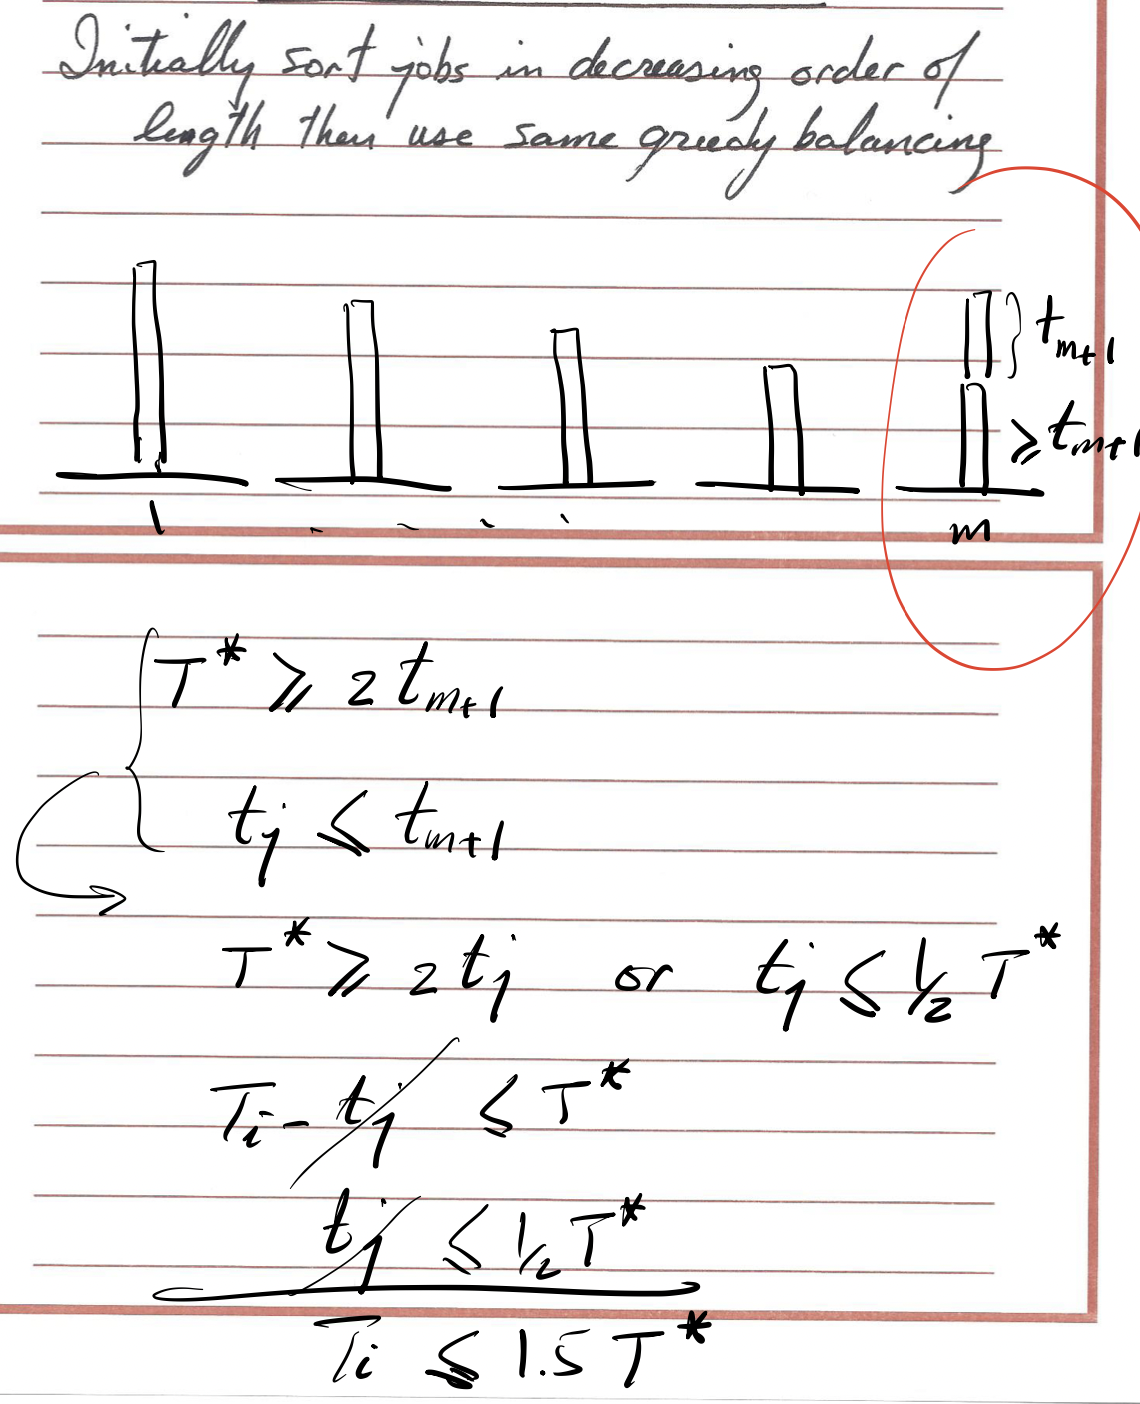 Initially sort jobs in decreasing order of
length then use same greedy balancing
} t_{m+1}
≥ t_{m+1}
1 . . . . m
T* ≥ 2 t_{m+1}
t_j ≤ t_{m+1}
T* ≥ 2 t_j or t_j ≤ 1/2 T*
T_i - t_j ≤ T*
t_j ≤ 1/2 T*
T_i ≤ 1.5 T*